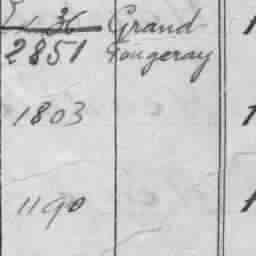 36 Grand
2851 Fougeray
1803
1190